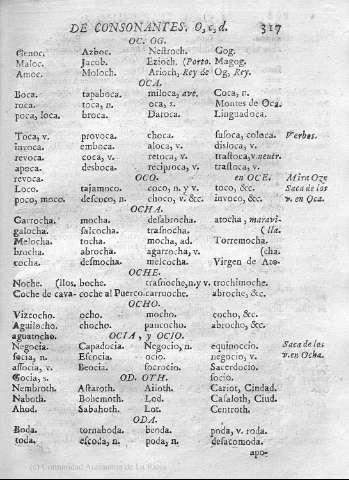 DE CONSONANTES, O, c, d. 317
OC. OG.
Genoc. Azboc. Nestroch. Gog.
Maloc. Jacob. Ezioch. (Porto. Magog.
Amoc. Moloch. Arioch, Rey de Og, Rey.
OCA.
Boca. tapaboca. miloca, ave. Coca, n.
roca. toca, n. oca, s. Montes de Oca.
poca, loca. broca. Daroca. Linguadoca.
Toca, v. provoca. choca. sufoca, coloca. Verbos.
invoca. emboca. aloca, v. disloca, v.
revoca. coca, v. retoca, v. trastoca, v. neutr.
apoca. desboca. reciproca, v. trastoca, v.
revoca. OCO. en OCE. Mira Oze
Loco. tajamoco. coco, n. y v. toco, &c. Saca de los
poco, moco. descoco, n. choco, v. &c. invoco, &c. v. en Oca.
OCHA.
Garrocha. mocha. desabrocha. atocha, maravi-
galocha. salcocha. trasnocha. (lla.
Melocha. tocha. mocha, ad. Torremocha.
brocha. abrocha. agarrocha, v. (cha.
cocha. desmocha. melcocha. Virgen de Ato-
OCHE.
Noche. (llos. boche. trasnoche, n. y v. trochimoche.
Coche de cava- coche al Puerco. carruoche. abroche, &c.
OCHO.
Vizcocho. ocho. mocho. cocho, &c.
Aguilocho. chocho. pancocho. abrocho, &c.
aguatocho. OCIA, y OCIO. Saca de los
Negocia. Capadocia. Negocio, n. equinoccio. v. en Ocha.
socia, n. Escocia. ocio. negocio, v.
associa, v. Beocia. socrocio. Sacerdocio.
Gocia, s. OD. OTH. socio.
Nembroth. Astaroth. Aiioth. Cariot, Ciudad.
Naboth. Bohemoth. Lod. Casaloth, Ciud.
Ahod. Sabahoth. Lot. Centroth.
ODA.
Boda. tornaboda. benda. poda, v. roda.
toda. escoda, n. poda, n. desacomoda.
apo-
(c) Comunidad Autónoma de La Rioja